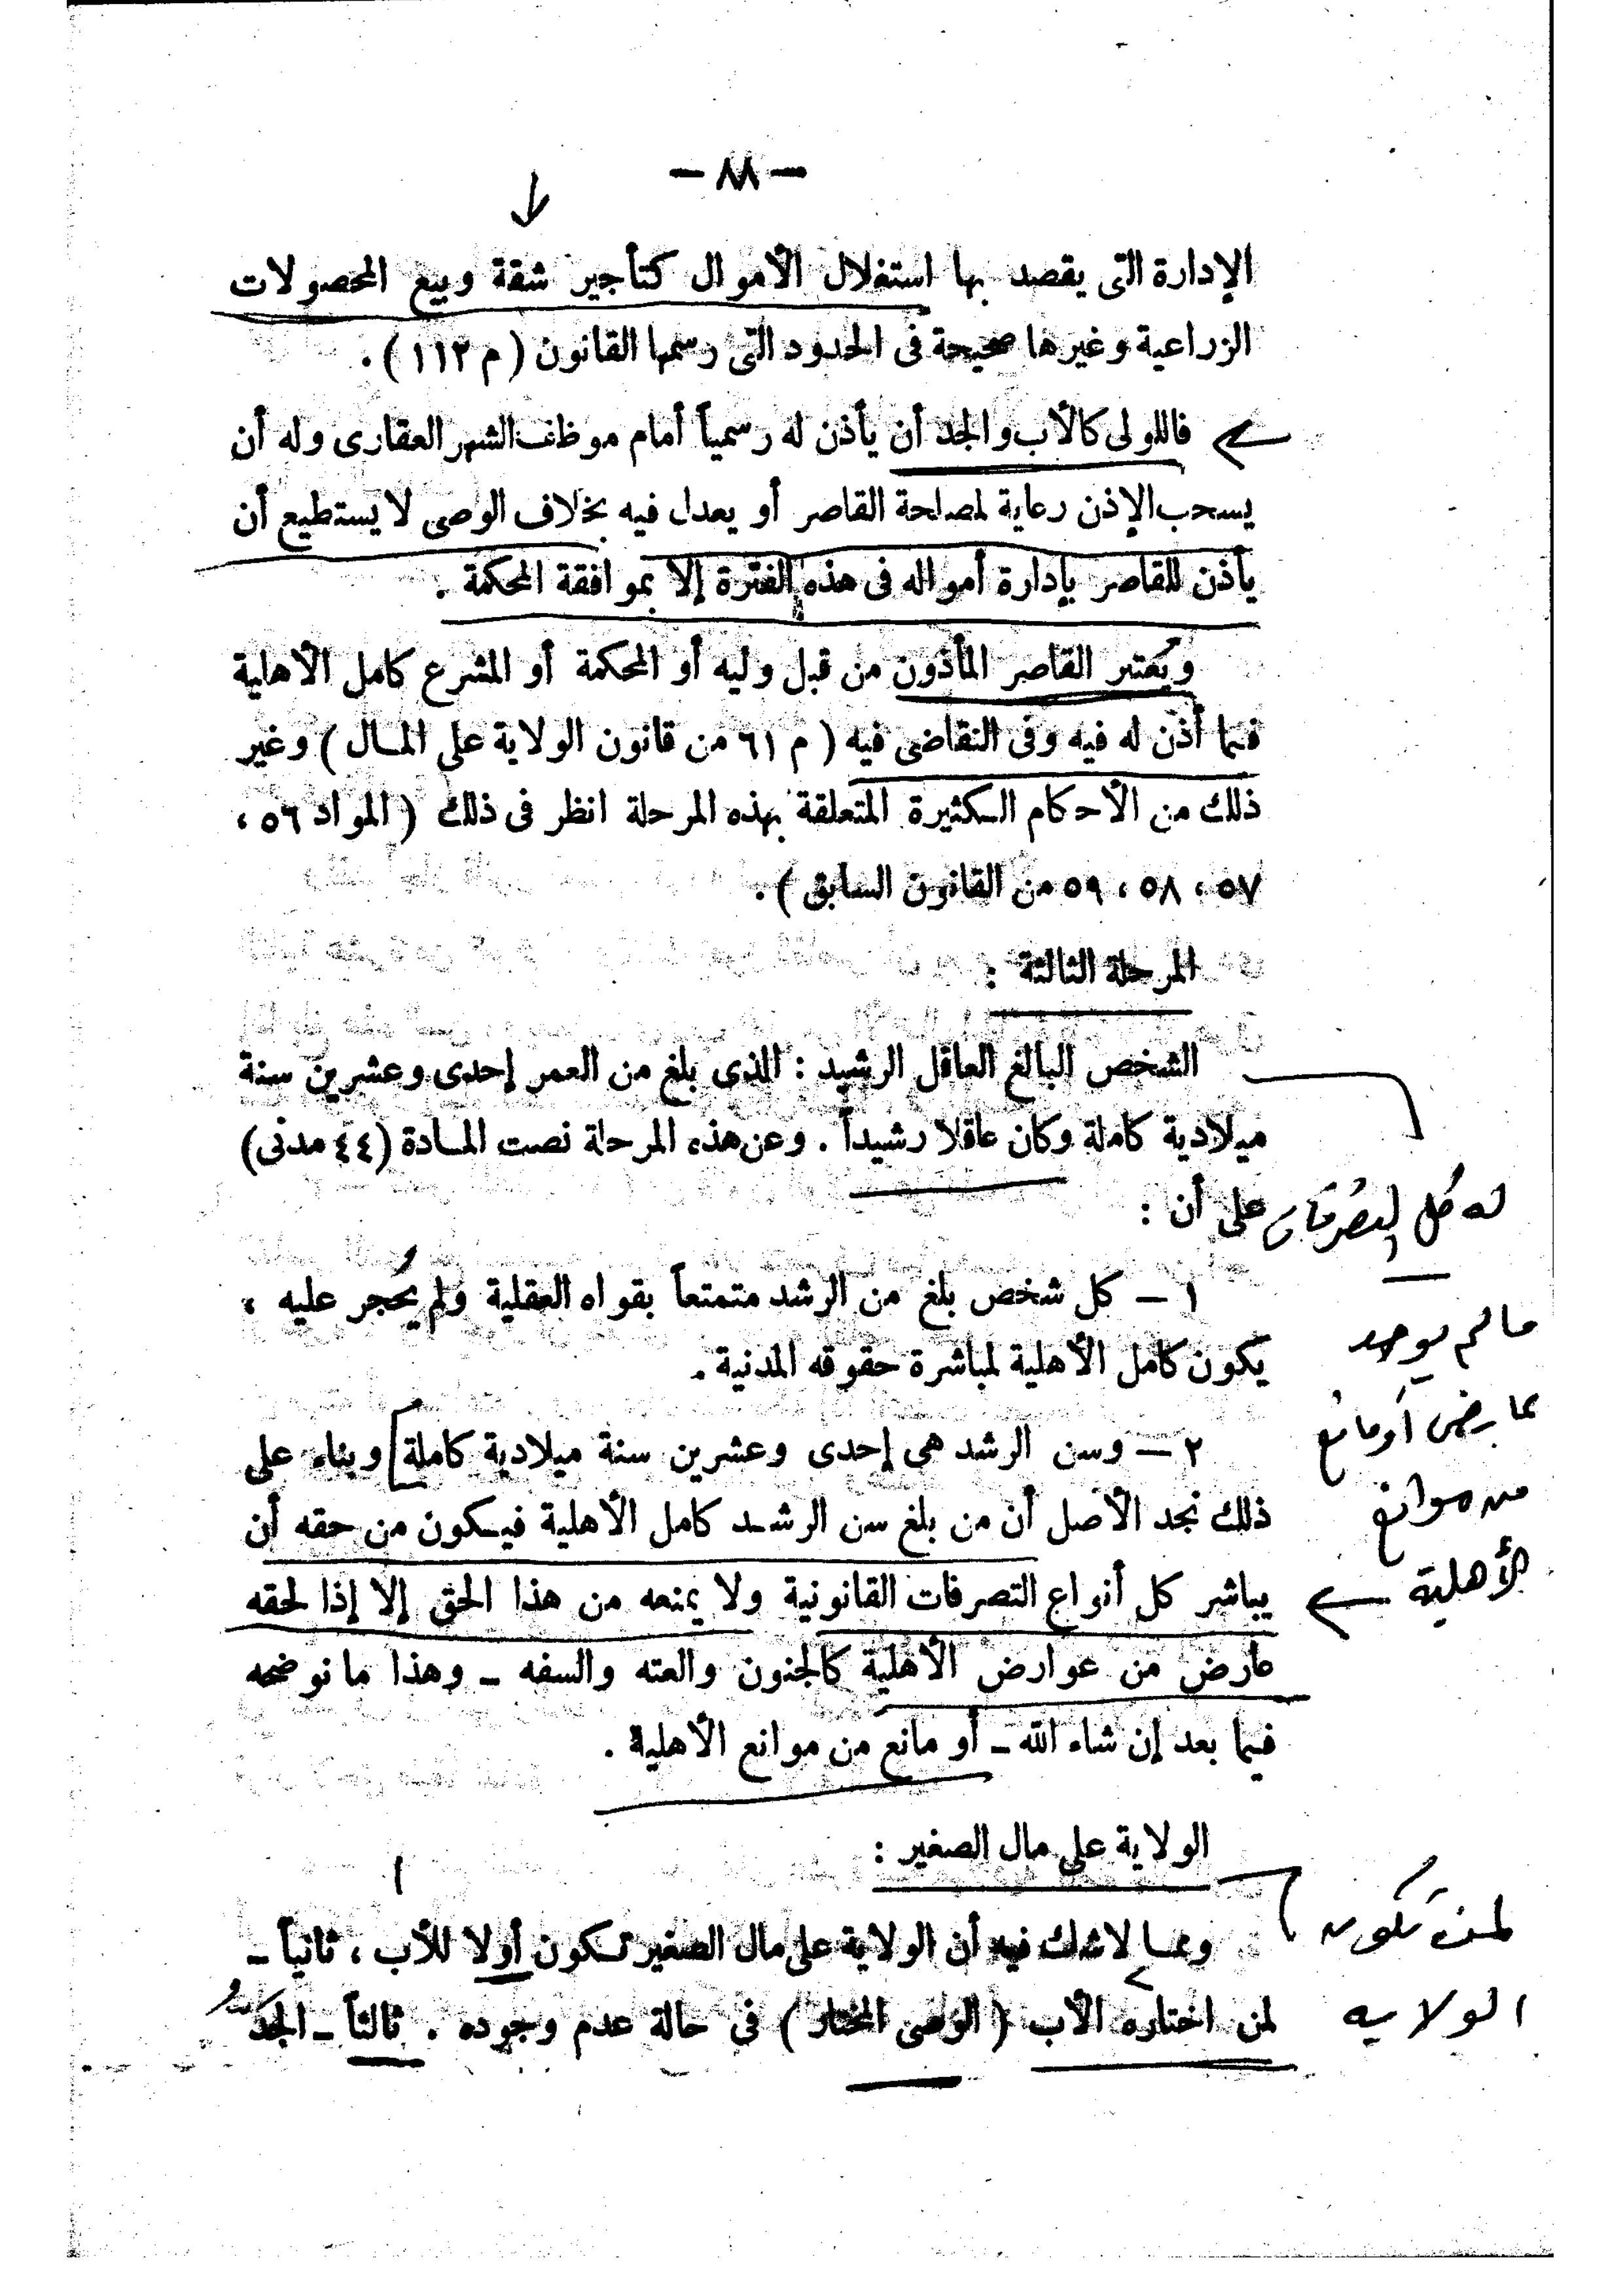 — ٨٨ —
الإدارة التى يقصد بها استغلال الأموال كتأجير شقة وبيع المحصولات
الزراعية وغيرها صحيحة فى الحدود التى رسمها القانون ( م ١١٢ ) .
فللولى كالأب والجد أن يأذن له رسمياً أمام موظف الشهر العقارى وله أن
يسحب الإذن رعاية لمصلحة القاصر أو يعدل فيه بخلاف الوصى لا يستطيع أن
يأذن للقاصر بإدارة أمواله فى هذه الفترة إلا بموافقة المحكمة .
ويُعتبر القاصر المأذون من قبل وليه أو المحكمة أو المشرع كامل الأهلية
فيما أذن له فيه وفى التقاضى فيه ( م ٦١ من قانون الولاية على المال ) وغير
ذلك من الأحكام الكثيرة المتعلقة بهذه المرحلة انظر فى ذلك ( المواد ٥٦ ،
٥٧ ، ٥٨ ، ٥٩ من القانون السابق ) .
المرحلة الثالثة :
الشخص البالغ العاقل الرشيد : الذى بلغ من العمر إحدى وعشرين سنة
ميلادية كاملة وكان عاقلا رشيداً . وعن هذه المرحلة نصت المادة (٤٤ مدنى)
على أن :
له كل التصرفات
١ — كل شخص بلغ من الرشد متمتعاً بقواه العقلية ولم يُحجر عليه ،
يكون كامل الأهلية لمباشرة حقوقه المدنية .
ما لم يوجد
عارض أو مانع
من موانع
الأهلية
٢ — وسن الرشد هى إحدى وعشرين سنة ميلادية كاملة] وبناء على
ذلك نجد الأصل أن من بلغ سن الرشد كامل الأهلية فيكون من حقه أن
يباشر كل أنواع التصرفات القانونية ولا يمنعه من هذا الحق إلا إذا لحقه
عارض من عوارض الأهلية كالجنون والعته والسفه — وهذا ما نوضحه
فيما بعد إن شاء الله — أو مانع من موانع الأهلية .
الولاية على مال الصغير :
لمن تكون
الولاية
ومما لاشك فيه أن الولاية على مال الصغير تكون أولا للأب ، ثانياً —
لمن اختاره الأب ( الوصى المختار ) فى حالة عدم وجوده . ثالثاً — الجدُ